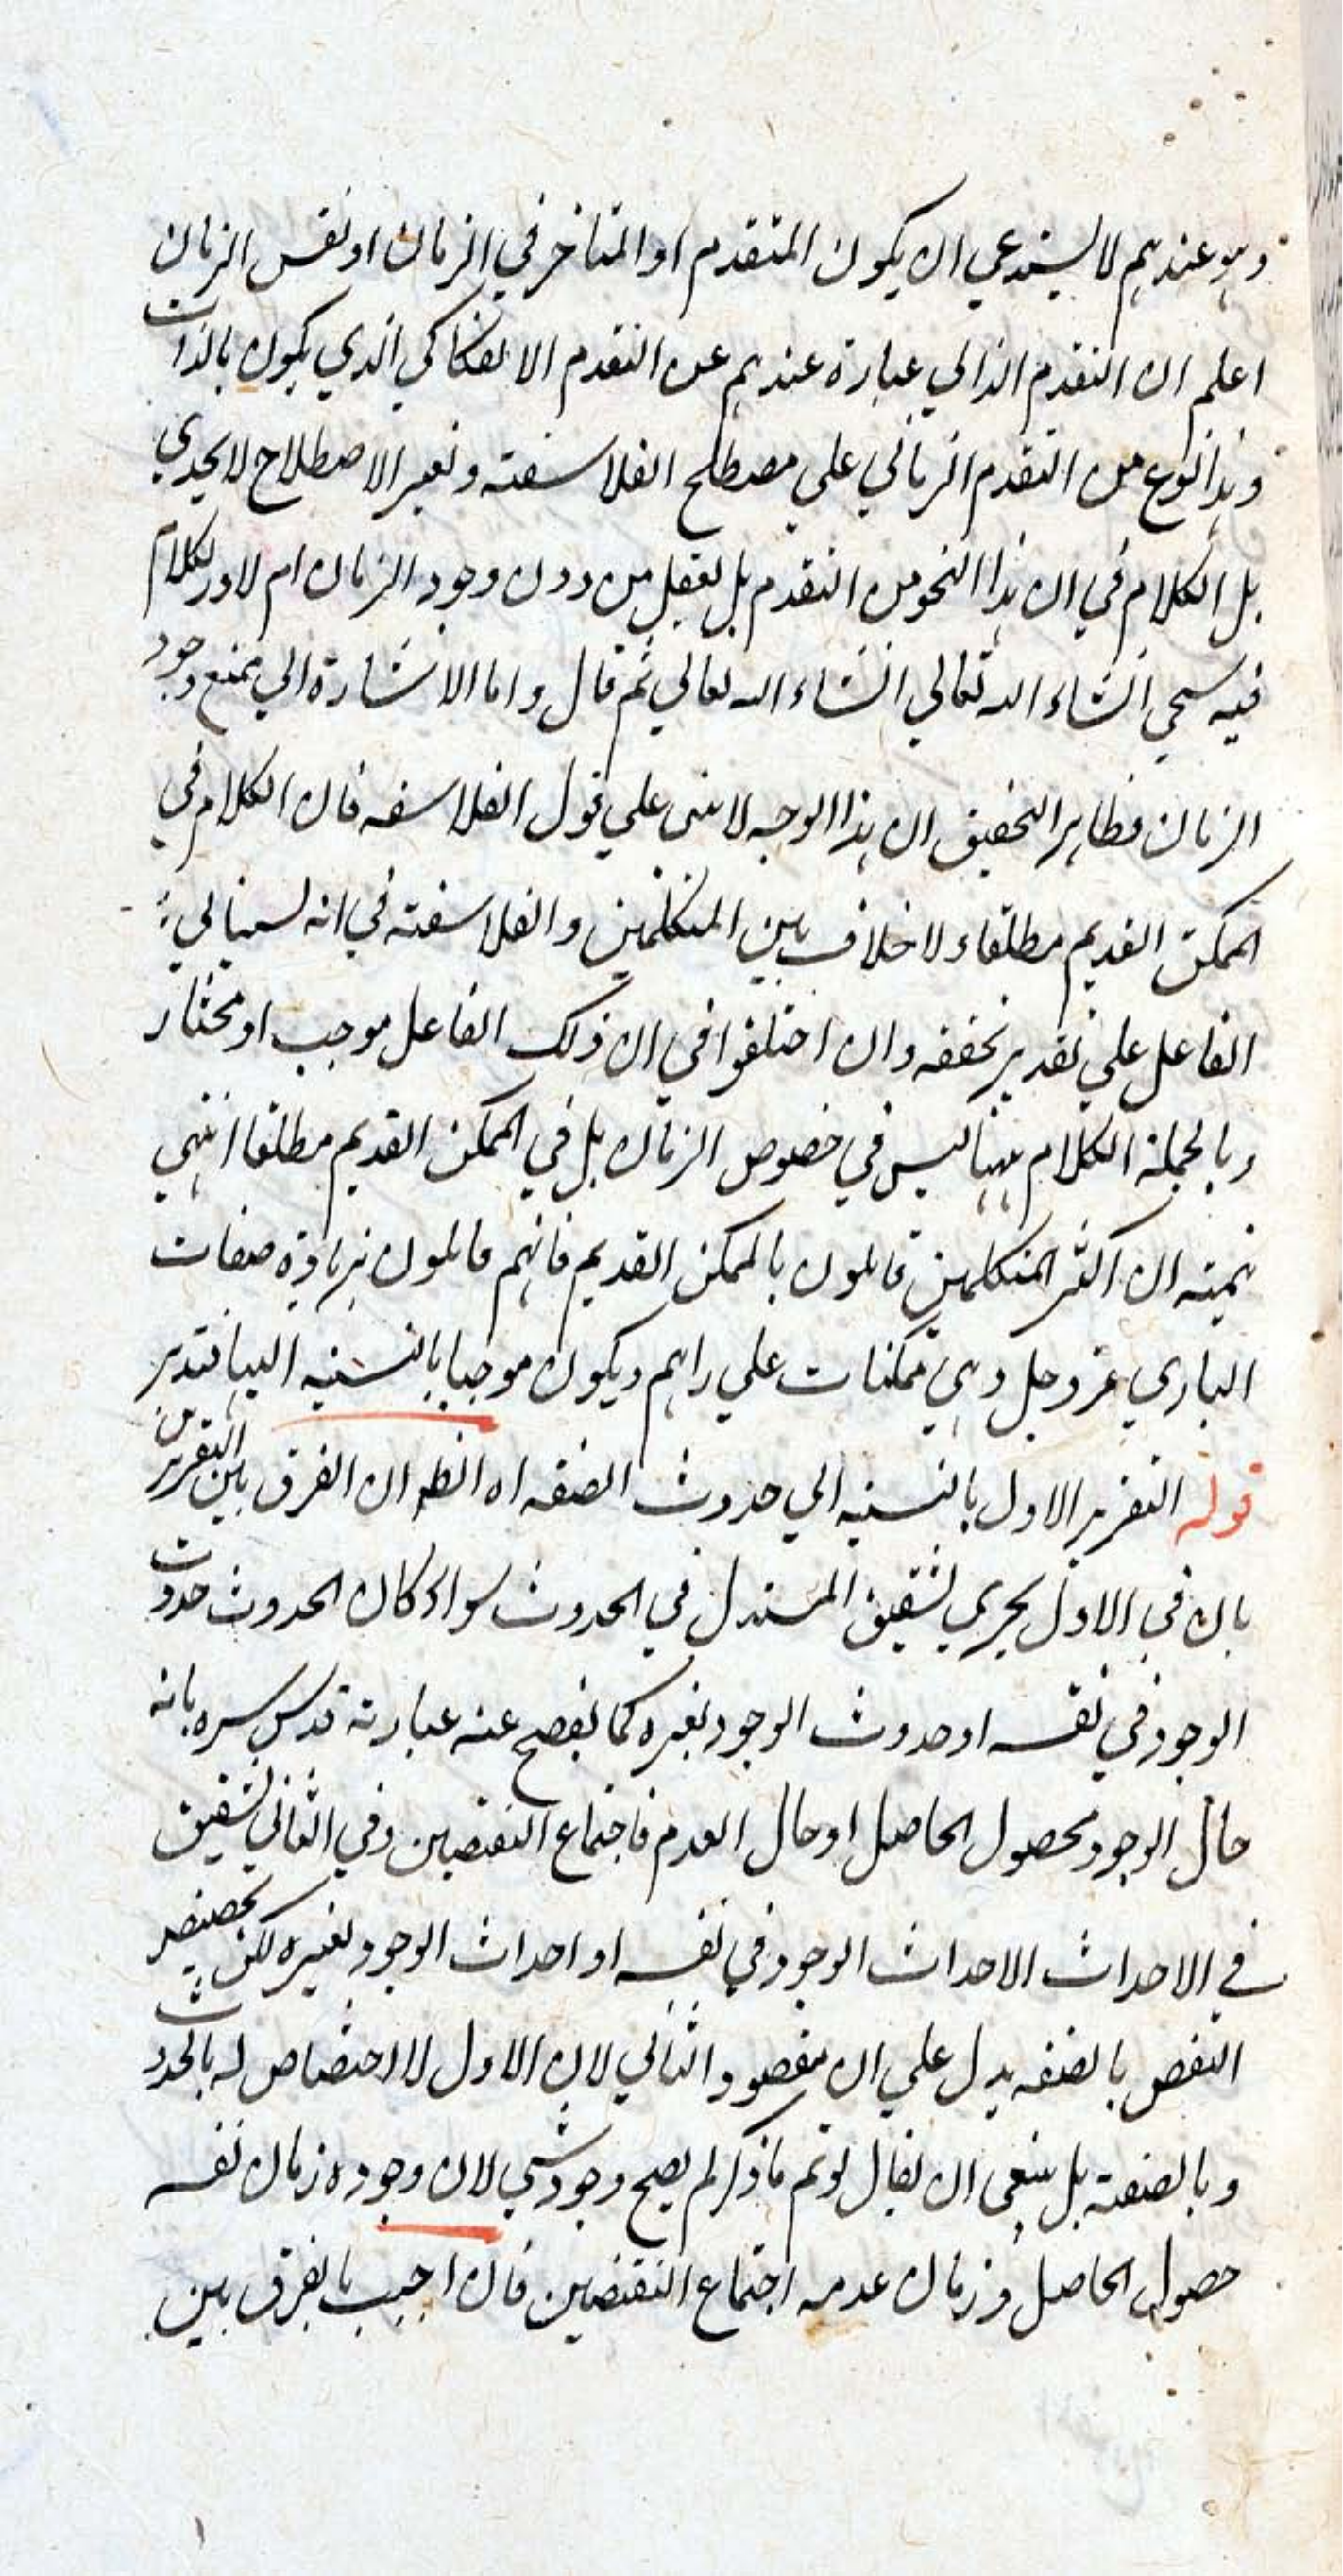 وهو عندهم لا يستدعي ان يكون المتقدم او المتاخر في الزمان او نفس الزمان
اعلم ان التقدم الذاتي عبارة عندهم عن التقدم الانفكاكي الذي يكون بالذات
وهذا نوع من التقدم الزماني علي مصطلح الفلاسفة وتغير الاصطلاح لا يجدي
بل الكلام في ان هذا النحو من التقدم هل يعقل من دون وجود الزمان ام لا والكلام
فيه سيجي انشاء الله تعالي انشاء الله تعالي ثم قال واما الاشارة الي منع وجود
الزمان فظاهر التحقيق ان هذا الوجه لا يبني علي قول الفلاسفه فان الكلام في
الممكن القديم مطلقا ولا خلاف بين المتكلمين والفلاسفة في انه
الفاعل علي تقدير تحققه وان اختلفوا في ان ذلك الفاعل موجب او مختار
وبالجملة الكلام ههنا ليس في خصوص الزمان بل في الممكن القديم مطلقا انتهي
ان اكثر المتكلمين قايلون بالممكن القديم فانهم قايلون بزيادة صفات
الباري عز وجل وهي ممكنات علي رايهم ويكون موجبا بالنسبة اليها فتدبر
قوله التقرير الاول بالنسبه الي حدوث الصفه اه الظ ان الفرق بين التقريرين
بان في الاول يجري تشقيق المستدل في الحدوث سواء كان الحدوث حدوث
الوجود في نفسه او حدوث الوجود لغيره كما يفصح عنه عبارته قدس سره بانه
حال الوجود فحصول الحاصل او حال العدم فاجتماع النقيضين وفي الثاني تشقيق
في الاحداث الاحداث الوجود في نفسه او احداث الوجود لغيره لكن تخصيص
النقض بالصفه يدل علي ان مقصود الثاني لان الاول لا اختصاص له بالحدوث
وبالصفة بل ينبغي ان يقال لو تم ما ذكر لم يصح وجود شي لان وجوده زمان نفسه
حصول الحاصل وزمان عدمه اجتماع النقيضين فان اجيب بالفرق بين